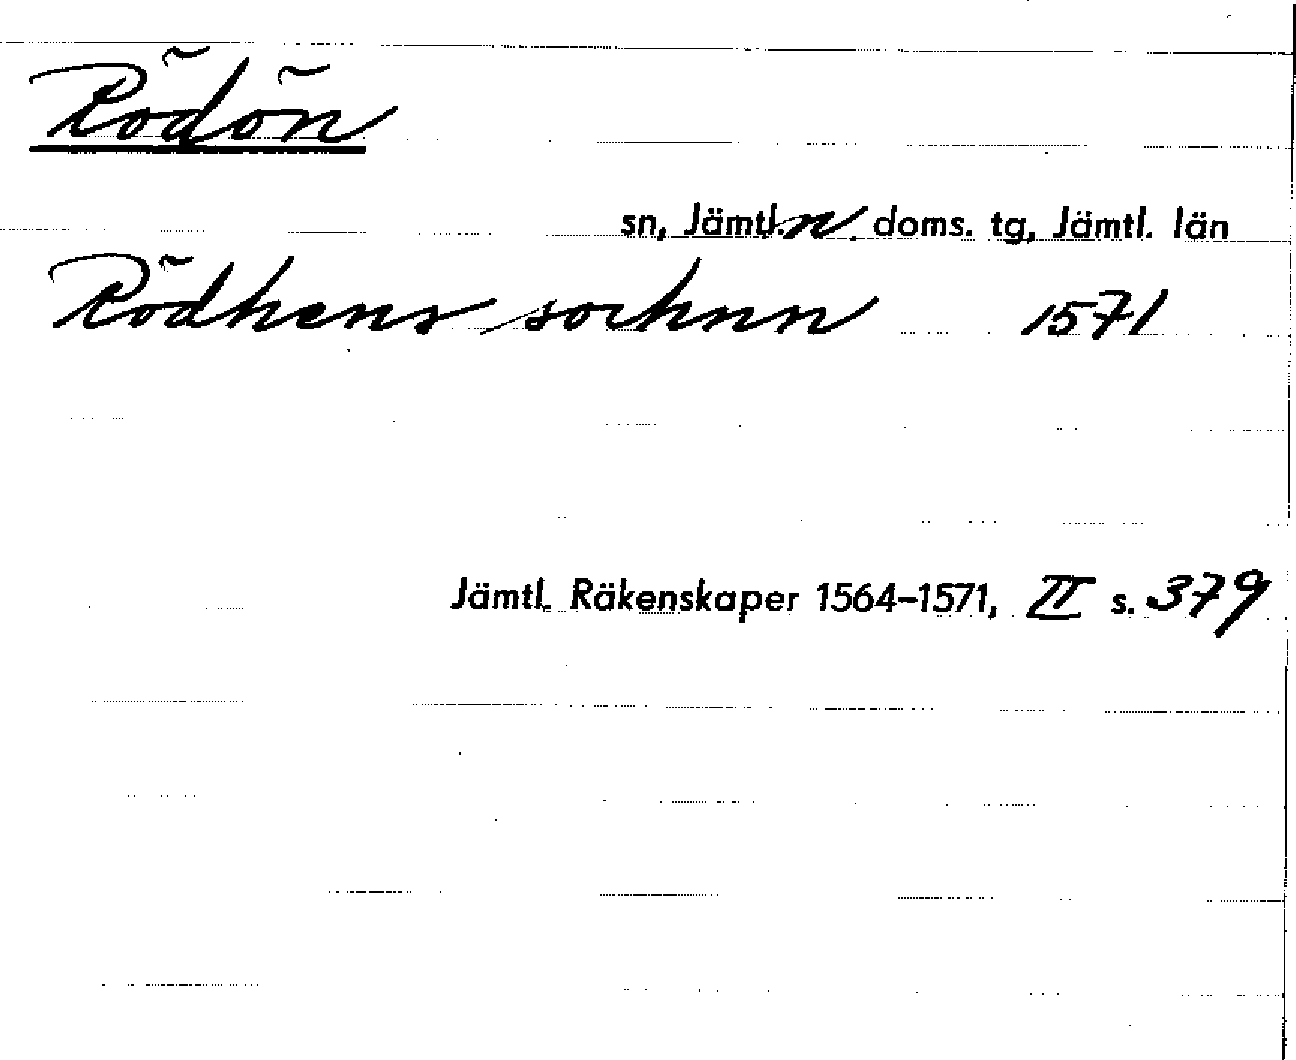 Rödön
sn, Jämtl. n. doms. tg, Jämtl. län
Rödhens sochnn 1571
Jämtl. Räkenskaper 1564-1571, II s. 379